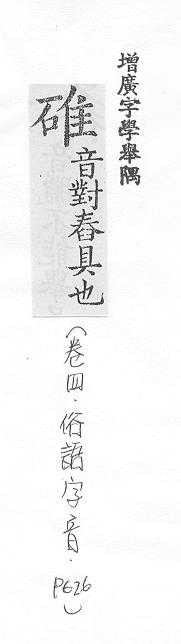 增廣字學舉隅
碓音對舂具也
（卷四．俗語字音．P626）